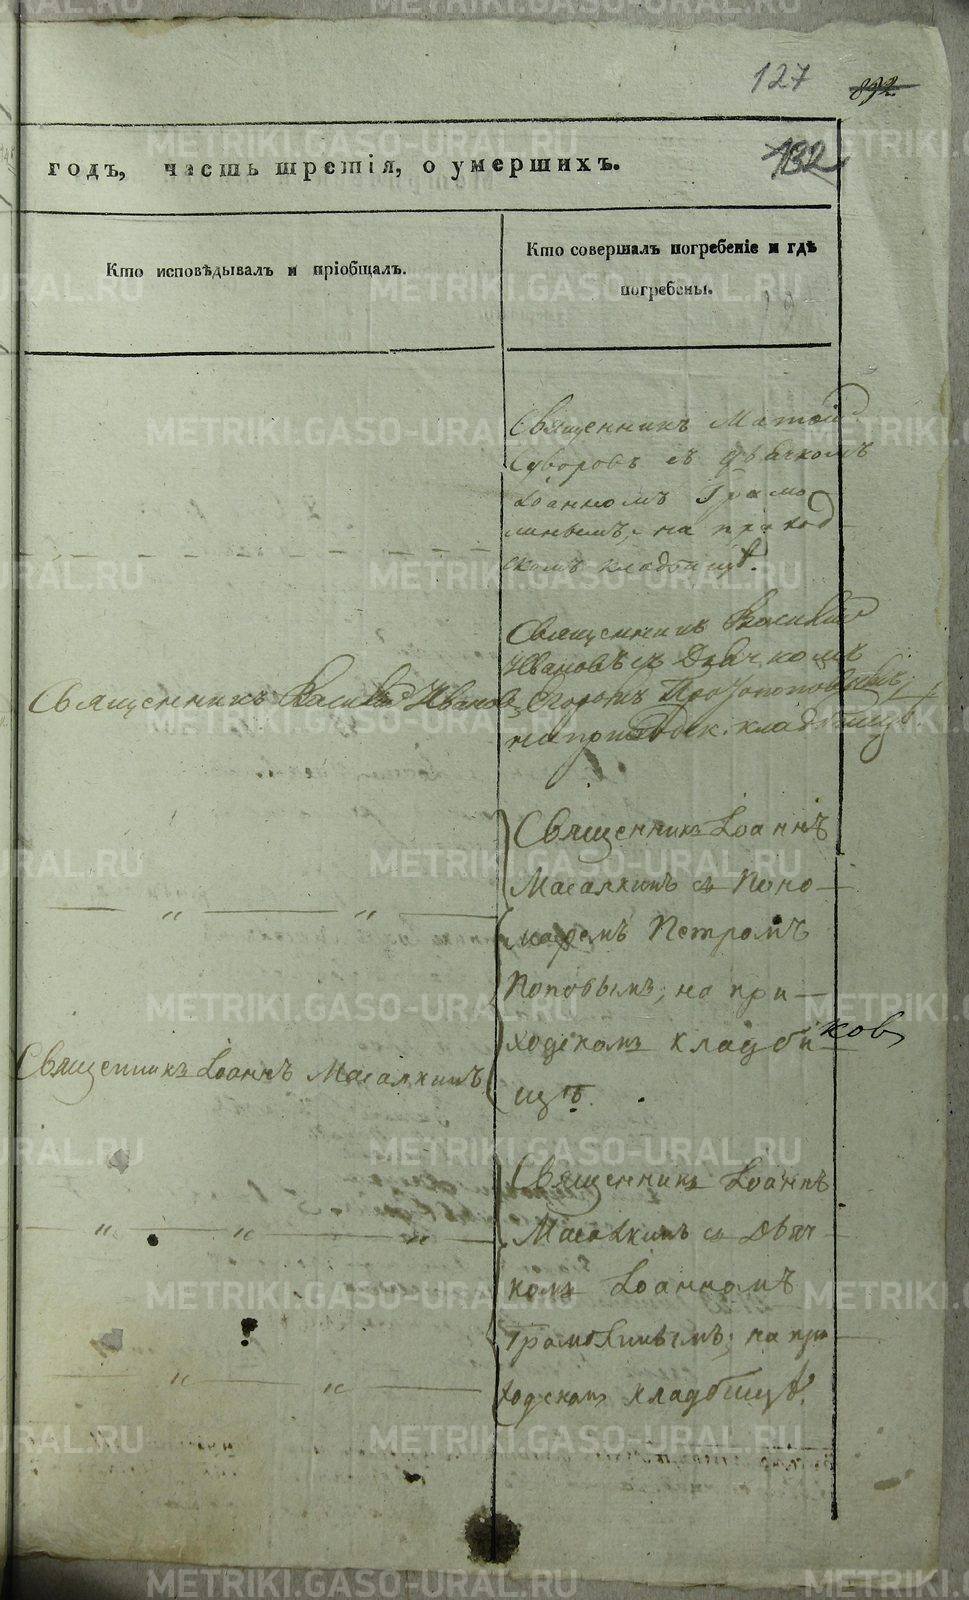 127
832
132
годъ, часть третія, о умершихъ.
Кто исповѣдывалъ и пріобщалъ.
Кто совершалъ погребеніе и гдѣ
погребены.
Священникъ Матѳій
Суворовъ съ дьячкомъ
Іоанномъ Грамо
линымъ, на приход
скомъ кладбищѣ.
Священникъ Василій
Ивановъ съ Дьячкомъ
Егоромъ Протопоповымъ,
на приходск. кладбищѣ
Священникъ Василій Ивановъ
Священникъ Іоаннъ
Масалкинъ съ Поно-
маремъ Петромъ
Поповымъ, на при-
ходскомъ кладби-
щѣ.
ковъ
Священникъ Іоаннъ Масалкинъ
Священникъ Іоаннъ
Масалкинъ съ Дьяч-
комъ Іоанномъ
Грамолинымъ, на при-
ходскомъ кладбищѣ.
METRIKI.GASO-URAL.RU